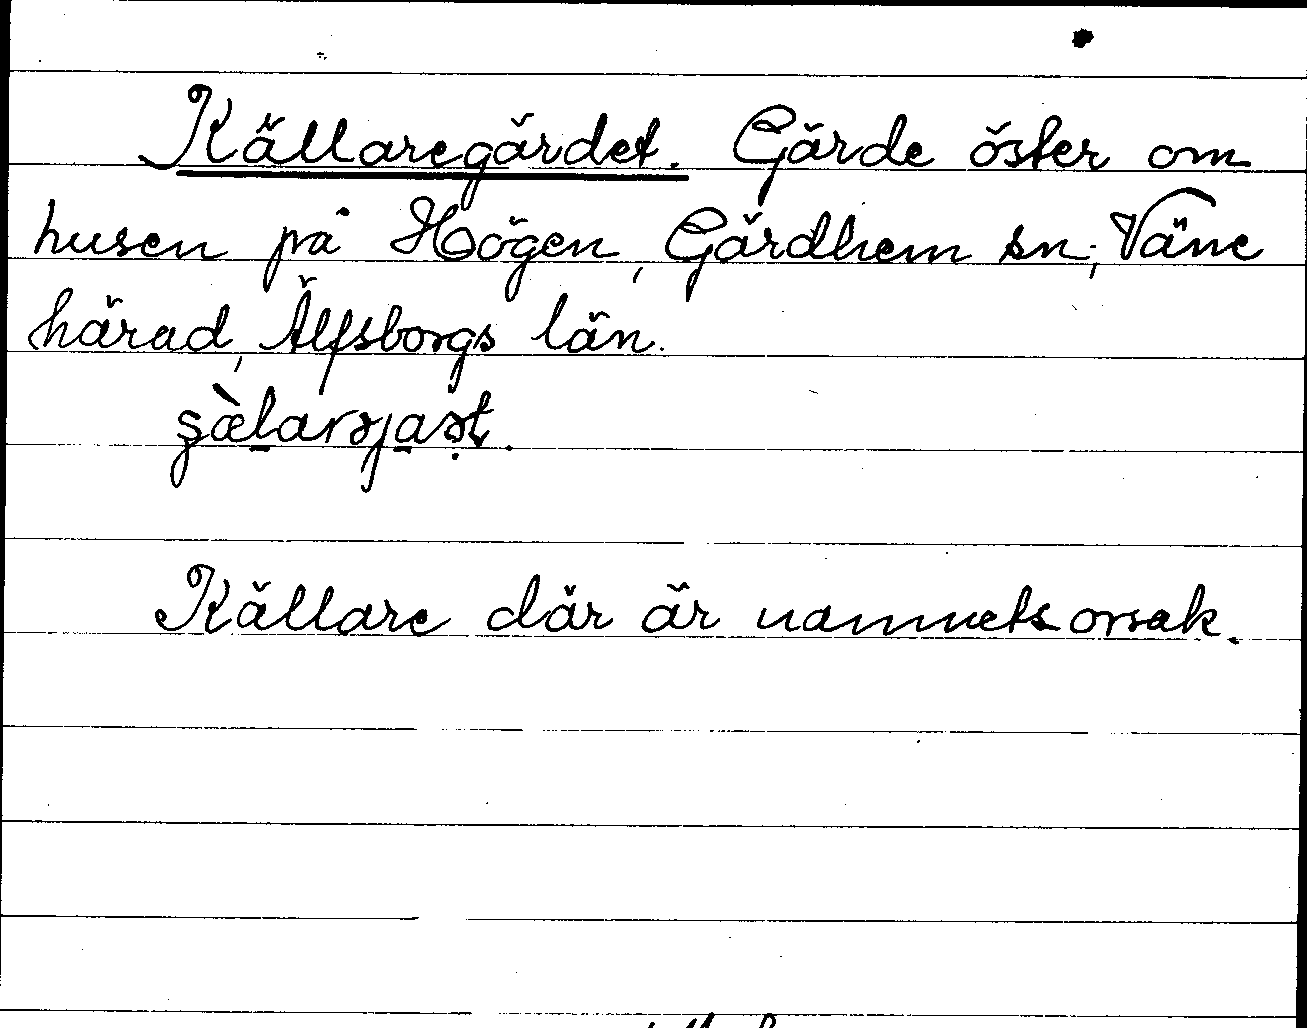 Källaregärdet. Gärde öster om
husen på Högen, Gärdhem sn; Väne
härad, Älfsborgs län.
Källare där är namnets orsak.